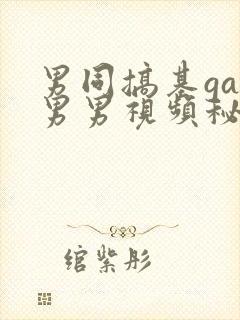 男同搞基ga
男男視頻秘
绾紫彤